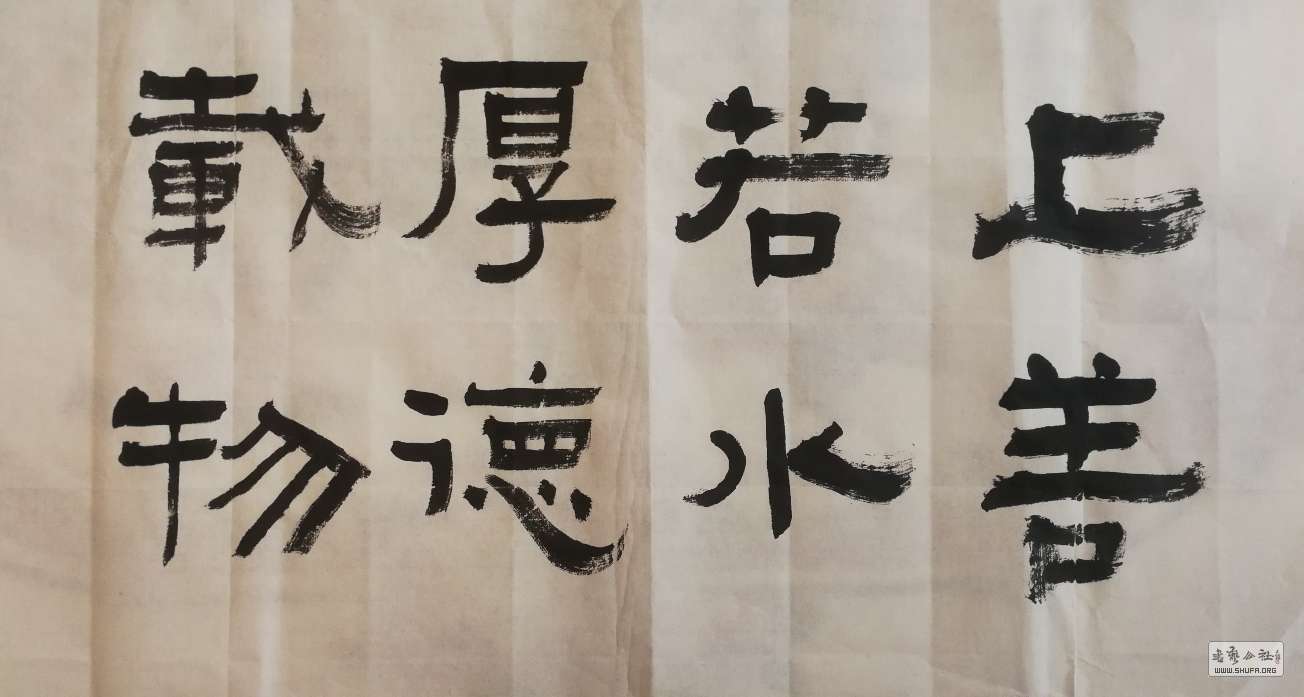 上善
若水
厚德
載物
WWW.SHUFA.ORG